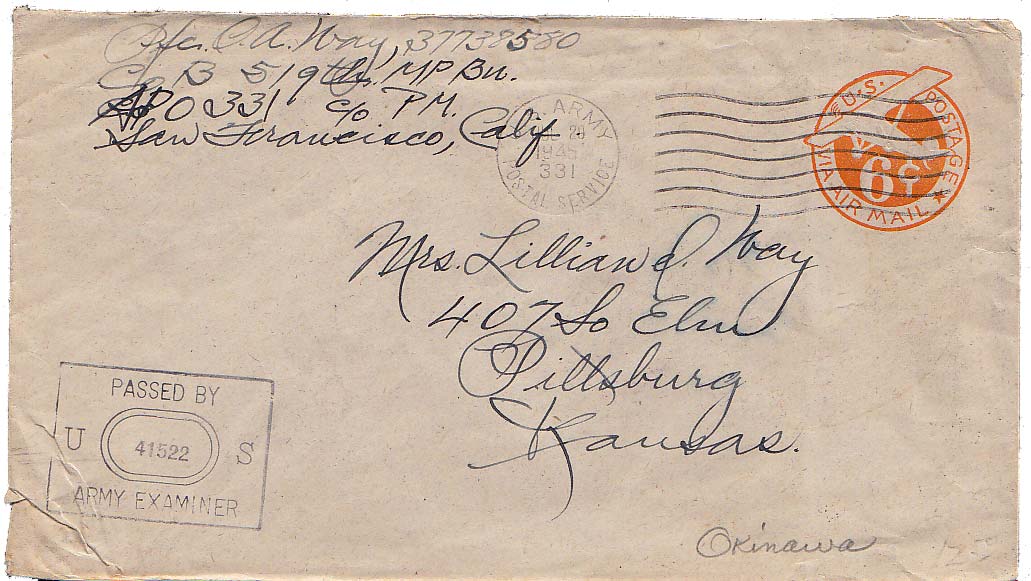 Pfc. O. A. Way, 37738580
Co B 519th. MP Bn.
APO 331 c/o PM.
San Francisco, Calif
ARMY
1945
331
POSTAL SERVICE
U.S. POSTAGE
6¢
VIA AIR MAIL
Mrs. Lillian I. Way
407 So Elm
Pittsburg
Kansas.
PASSED BY
U 41522 S
ARMY EXAMINER
Okinawa